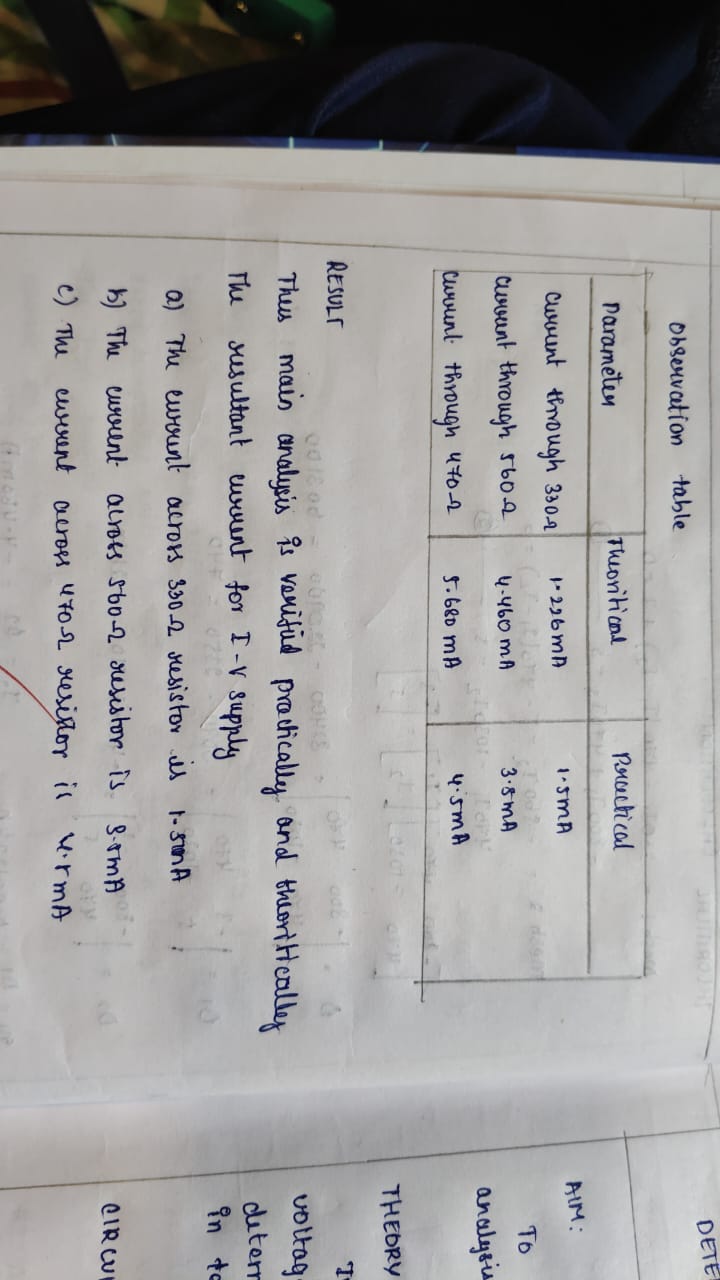 Observation table
Parameter Theoritical Practical
Current through 330Ω 1.226mA 1.5mA
Current through 560Ω 4.460 mA 3.5mA
Current through 470Ω 5.680 mA 4.5mA
RESULT
Thus main analysis is verified practically and theoritically
The resultant current for I-V supply
a) The current across 330Ω resistor is 1.5mA
b) The current across 560Ω resistor is 3.5mA
c) The current across 470Ω resistor is 4.5mA
DETE
AIM:
To
analysis
THEORY
voltag
deter
in
CIRCU